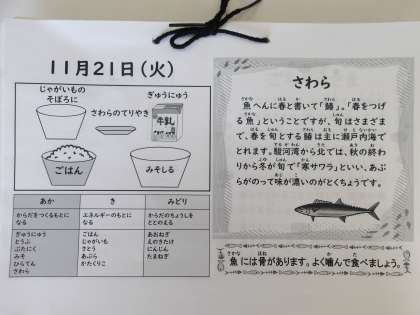 11月21日(火)
じゃがいもの
そぼろに
さわらのてりやき
ぎゅうにゅう
牛乳
ごはん
みそしる
あか
き
みどり
からだをつくるもとに
なる
エネルギーのもとに
なる
からだのちょうしを
ととのえる
ぎゅうにゅう
とうふ
ぶたにく
みそ
ひらてん
さわら
ごはん
じゃがいも
さとう
あぶら
かたくりこ
あおねぎ
えのきたけ
にんじん
たまねぎ
さわら
魚へんに春と書いて「鰆」。「春をつげ
る魚」ということですが、旬はさまざま
で、春を旬とする鰆は主に瀬戸内海で
とれます。駿河湾から北では、秋の終わ
りから冬が旬で「寒サワラ」といい、あぶ
らがのって味が濃いのがとくちょうです。
魚には骨があります。よく噛んで食べましょう。